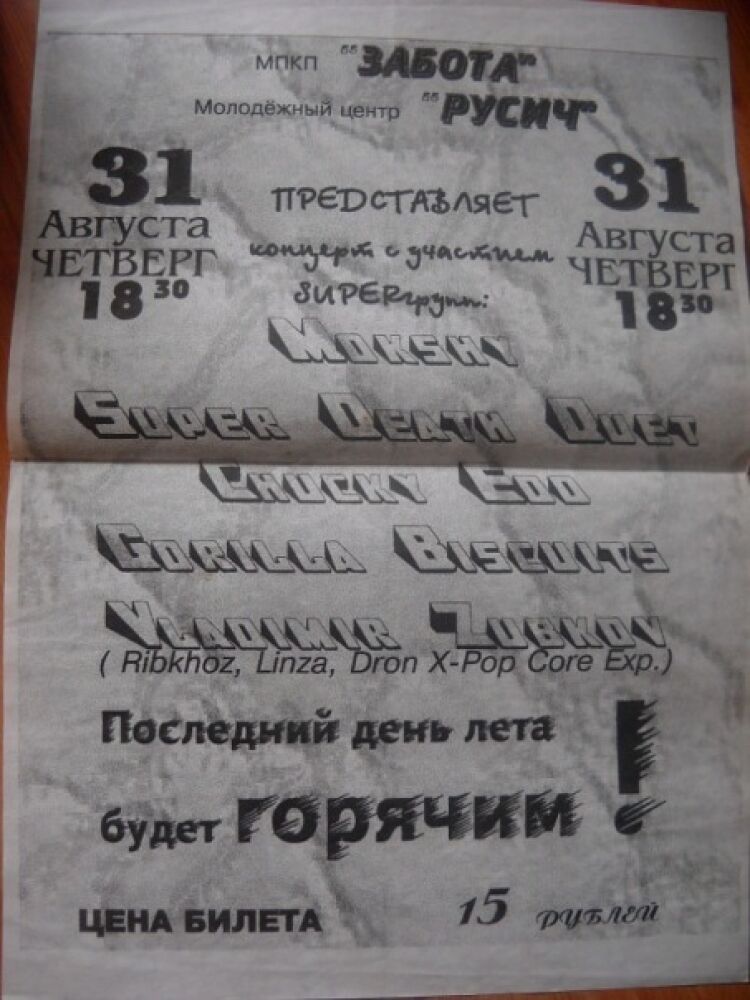 МПКП "ЗАБОТА"
Молодёжный центр "РУСИЧ"
31
Августа
ЧЕТВЕРГ
18 30
ПРЕДСТАВЛЯЕТ
концерт с участием
SUPERгрупп:
31
Августа
ЧЕТВЕРГ
18 30
MOKSHY
SUPER DEATH DUET
CHUCKY EDO
GORILLA BISCUITS
VLADIMIR ZUBKOV
( Ribkhoz, Linza, Dron X-Pop Core Exp.)
Последний день лета
будет горячим !
ЦЕНА БИЛЕТА 15 РУБЛЕЙ